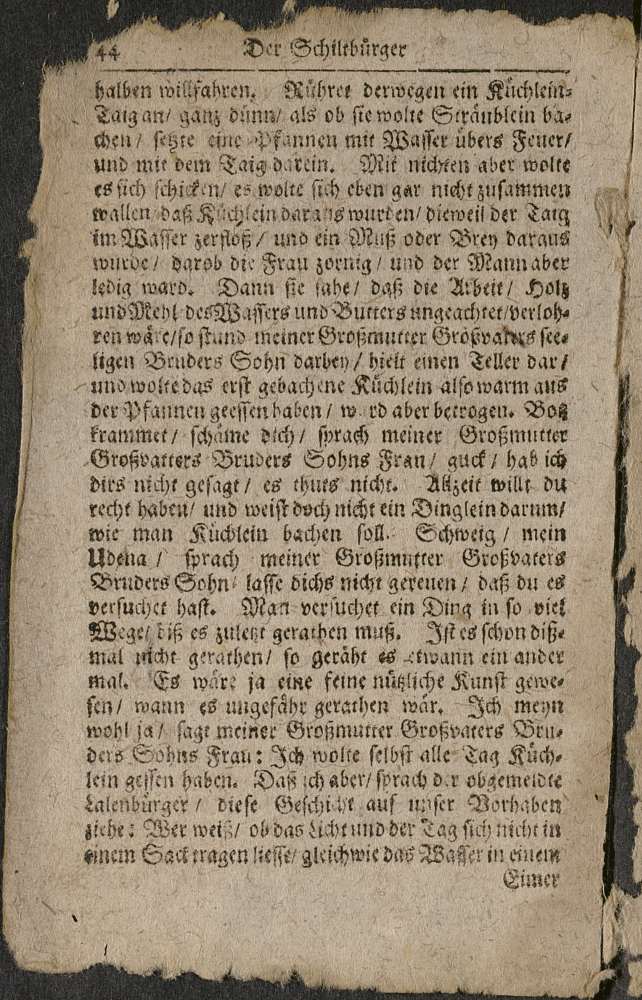 44 Der Schiltbürger
halben willfahren. Rühret derwegen ein Küchlein-
Taig an/ ganz dünn/ als ob sie wolte Sträublein ba-
chen/ setzte eine Pfannen mit Wasser übers Feuer/
und mit dem Taig darein. Mit nichten aber wolte
es sich schicken/ es wolte sich eben gar nicht zusammen
wallen daß Küchlein daraus wurden/ dieweil der Taig
im Wasser zerfloß/ und ein Muß oder Brey daraus
wurde/ darob die Frau zornig/ und der Mann aber
ledig ward. Dann sie sahe/ daß die Arbeit/ Holtz
und Mehl des Wassers und Butters ungeachtet/verloh-
ren wäre/so stund meiner Großmutter Großvaters see-
ligen Bruders Sohn darbey/ hielt einen Teller dar/
und wolte das erst gebachene Küchlein also warm aus
der Pfannen geessen haben/ ward aber betrogen. Botz
krammet/ schäme dich/ sprach meiner Großmutter
Großvatters Bruders Sohns Frau/ guck/ hab ich
dirs nicht gesagt/ es thuts nicht. Allzeit willt du
recht haben/ und weist doch nicht ein Dinglein darum/
wie man Küchlein bachen soll. Schweig/ mein
Udena/ sprach meiner Großmutter Großvaters
Bruders Sohn/ lasse dichs nicht gereuen/ daß du es
versuchet hast. Man versuchet ein Ding in so viel
Wege/ biß es zuletzt gerathen muß. Ist es schon diß-
mal nicht gerathen/ so geräht es etwann ein ander
mal. Es wäre ja eine feine nützliche Kunst gewe-
sen/ wann es ungefähr gerathen wär. Ich meyn
wohl ja/ sagt meiner Großmutter Großvaters Bru-
ders Sohns Frau: Ich wolte selbst alle Tag Küch-
lein gessen haben. Daß ich aber/ sprach der obgemeldte
Lalenbürger/ diese Geschicht auf unser Vorhaben
ziehe: Wer weiß/ ob das Licht und der Tag sich nicht in
einem Sack tragen liesse/ gleichwie das Wasser in einem
Eimer